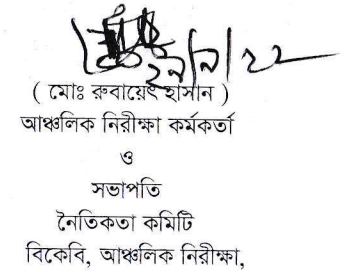 ( মোঃ রুবায়েৎ হাসান )
আঞ্চলিক নিরীক্ষা কর্মকর্তা
ও
সভাপতি
নৈতিকতা কমিটি
বিকেবি, আঞ্চলিক নিরীক্ষা,